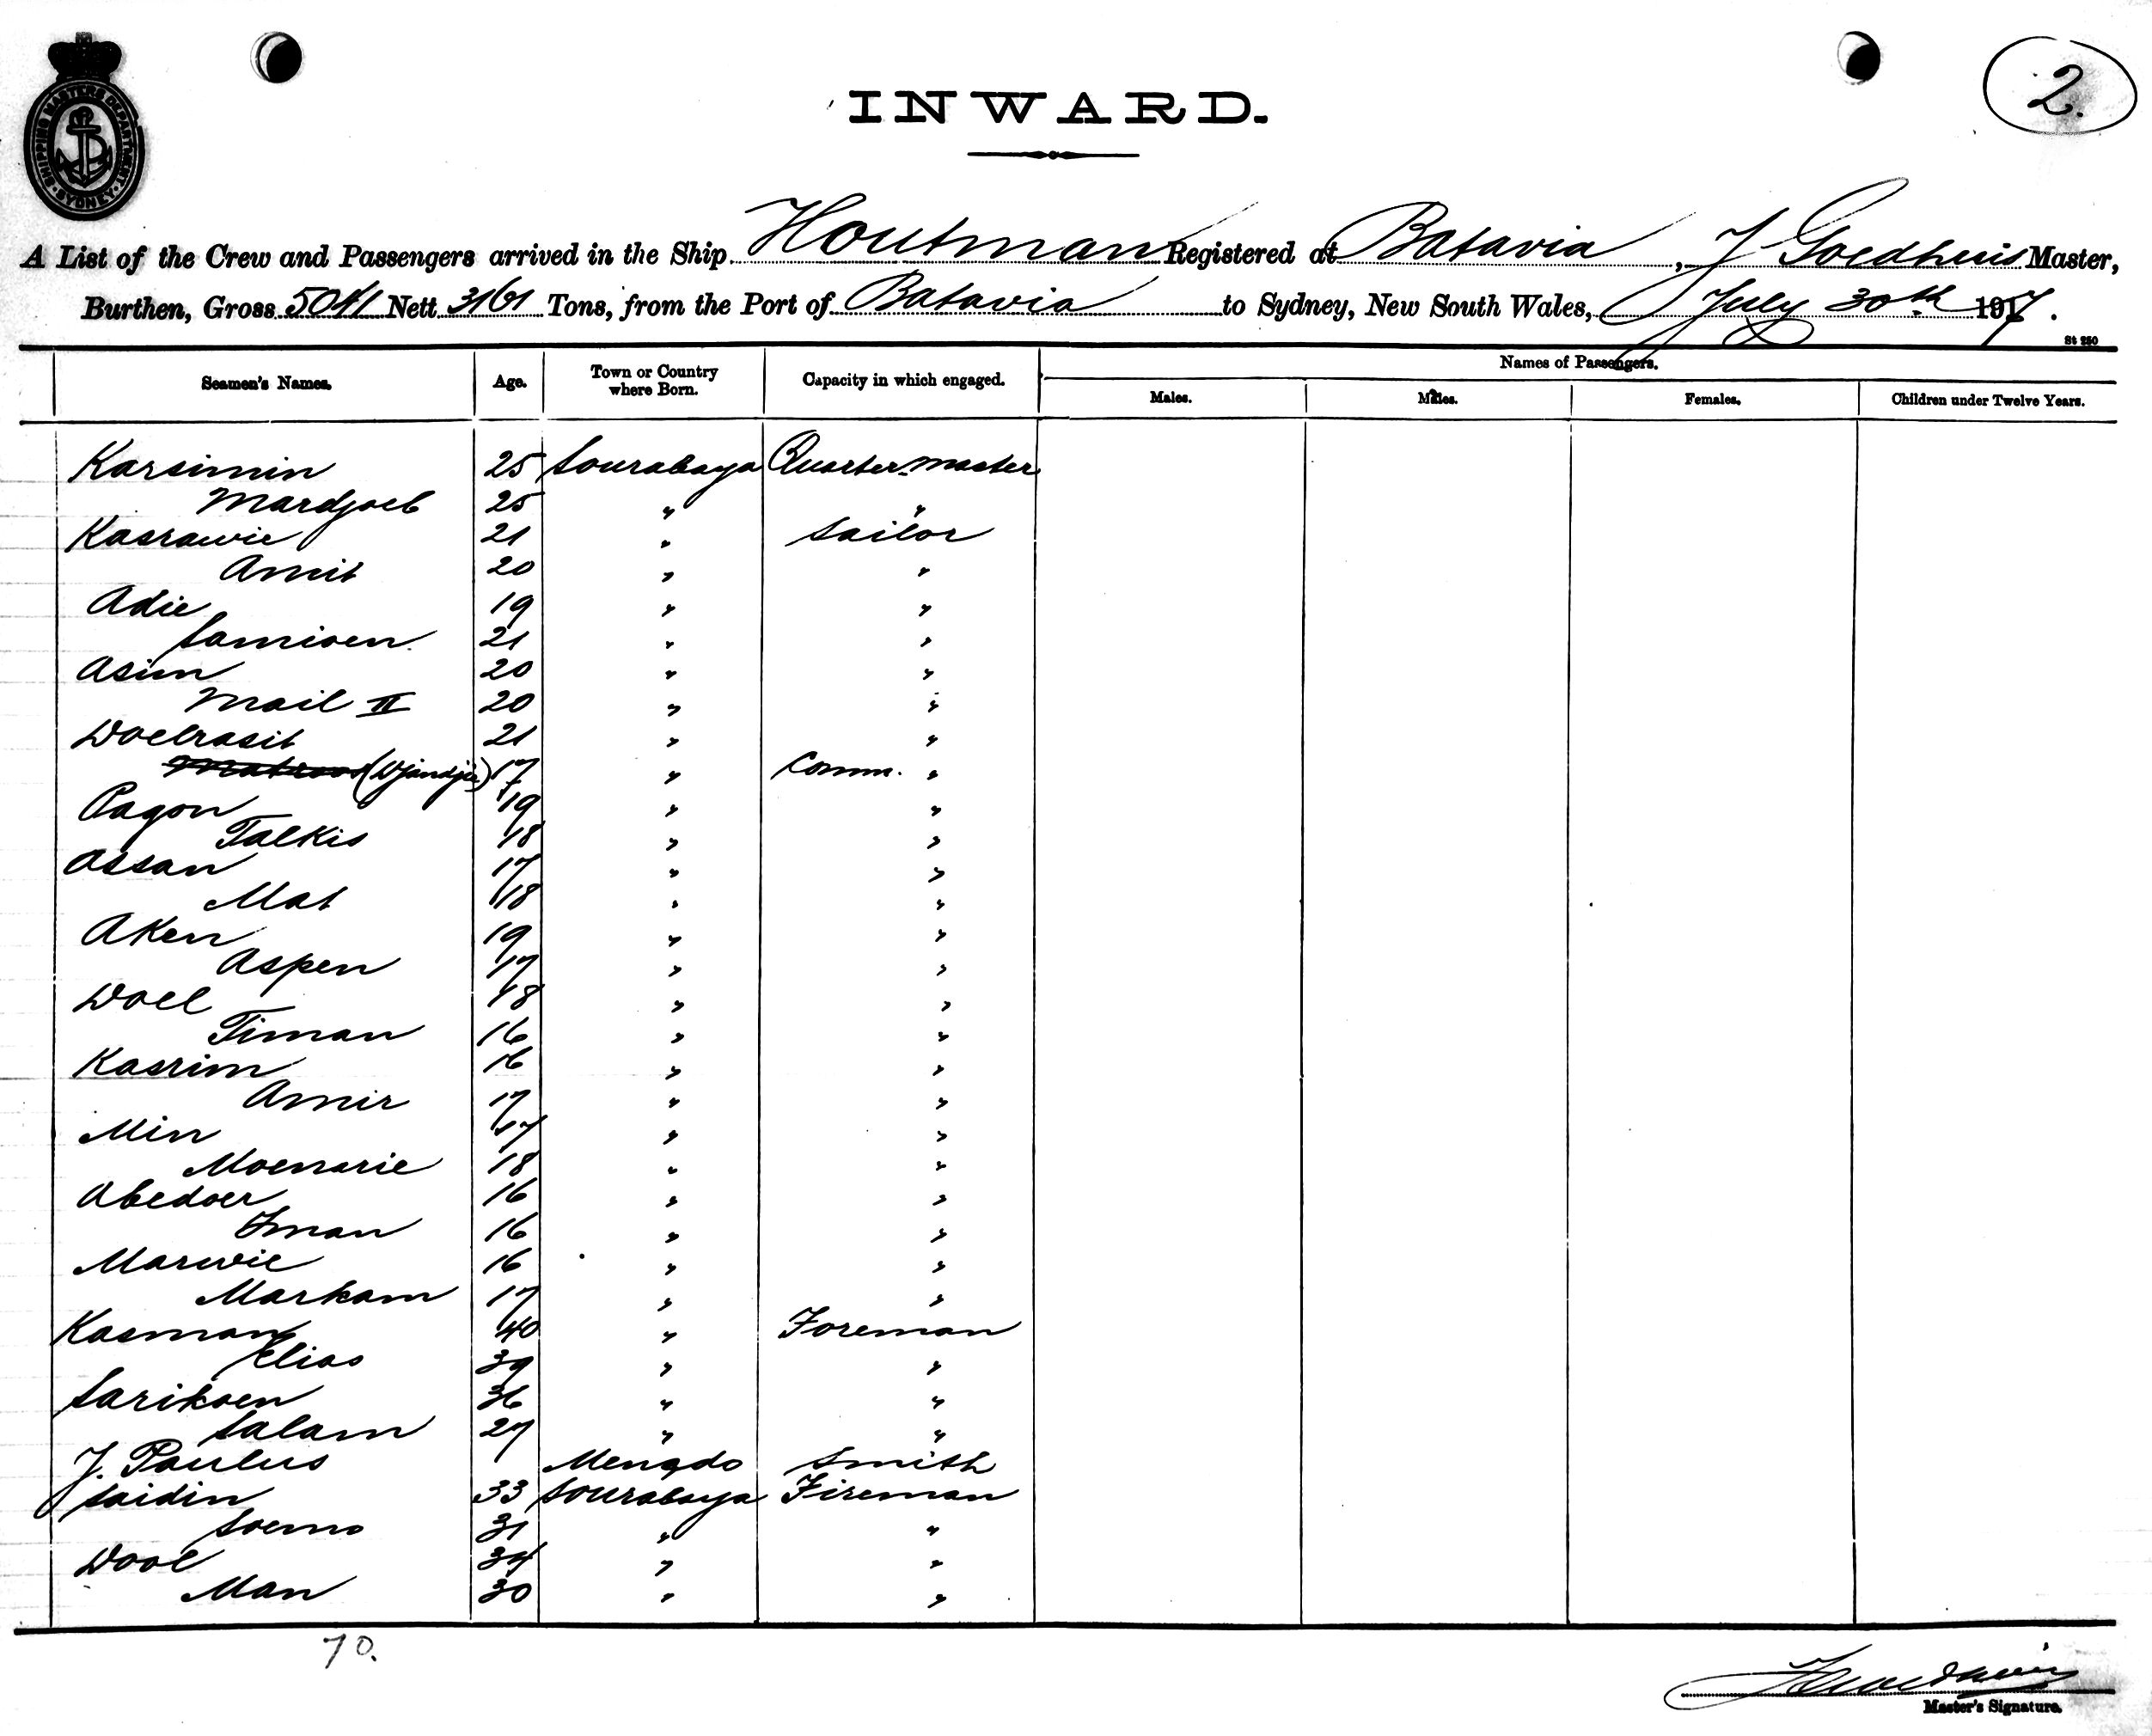 SHIPPING MASTERS DEPARTMENT SYDNEY
2.
INWARD.
A List of the Crew and Passengers arrived in the Ship Houtman Registered at Batavia, J Goedhuis Master,
Burthen, Gross 5041 Nett 3161 Tons, from the Port of Batavia to Sydney, New South Wales, July 30th 1917.
St 250
Seamen's Names. Age. Town or Country where Born. Capacity in which engaged. Names of Passengers.
Males. Males. Females. Children under Twelve Years.
Karsimin 25 Sourabaya Quarter-master
Mardjoeb 25 " "
Kasrawie 21 " Sailor
Amit 20 " "
Adie 19 " "
Samioen 21 " "
Asim 20 " "
Mail II 20 " "
Doelrasit 21 " "
Matroos (Djandjie) 17 " Comm. "
Pagon 19 " "
Talkis 18 " "
Assan 17 " "
Mat 18 " "
Aken 19 " "
Aspen 17 " "
Doel 18 " "
Timan 16 " "
Kasrim 16 " "
Amir 17 " "
Min 17 " "
Moenarie 18 " "
Abedoer 16 " "
Iman 16 " "
Marwie 16 " "
Markam 17 " "
Kasman 40 " Foreman
Elias 39 " "
Sarikoen 36 " "
Salam 27 " "
J. Paulus Menado Smith
Saidin 33 Sourabaya Fireman
Soemo 31 " "
Dool 34 " "
Man 30 " "
70.
J Goedhuis
Master's Signature.